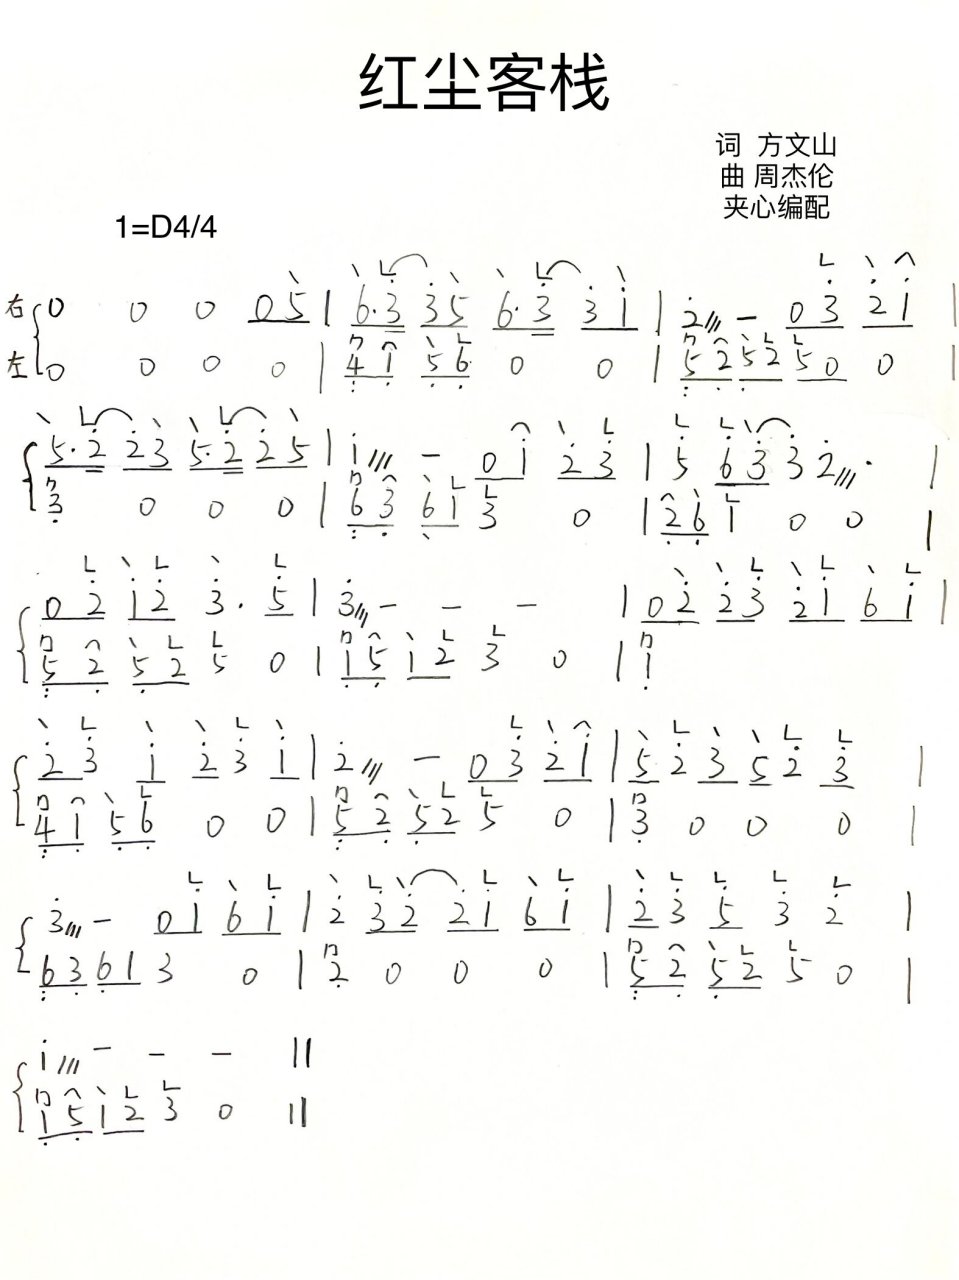 红尘客栈
词 方文山
曲 周杰伦
夹心编配
1=D4/4
右 0 0 0 0 5 | 6·3 3 5 6·3 3 1 | 2/// – 0 3 2 1 |
左 0 0 0 0 | 4 1 5 6 0 0 | 5 2 5 2 5 0 0 |
5·2 2 3 5·2 2 5 | 1/// – 0 1 2 3 | 5 6 3 3 2///· |
3 0 0 0 | 6 3 6 1 3 0 | 2 6 1 0 0 |
0 2 1 2 3· 5 | 3/// – – – | 0 2 2 3 2 1 6 1 |
5 2 5 2 5 0 | 1 5 1 2 3 0 | 1
2 3 1 2 3 1 | 2/// – 0 3 2 1 | 5 2 3 5 2 3 |
4 1 5 6 0 0 | 5 2 5 2 5 0 | 3 0 0 0 |
3/// – 0 1 6 1 | 2 3 2 2 1 6 1 | 2 3 5 3 2 |
6 3 6 1 3 0 | 2 0 0 0 | 5 2 5 2 5 0 |
1/// – – – ||
1 5 1 2 3 0 ||